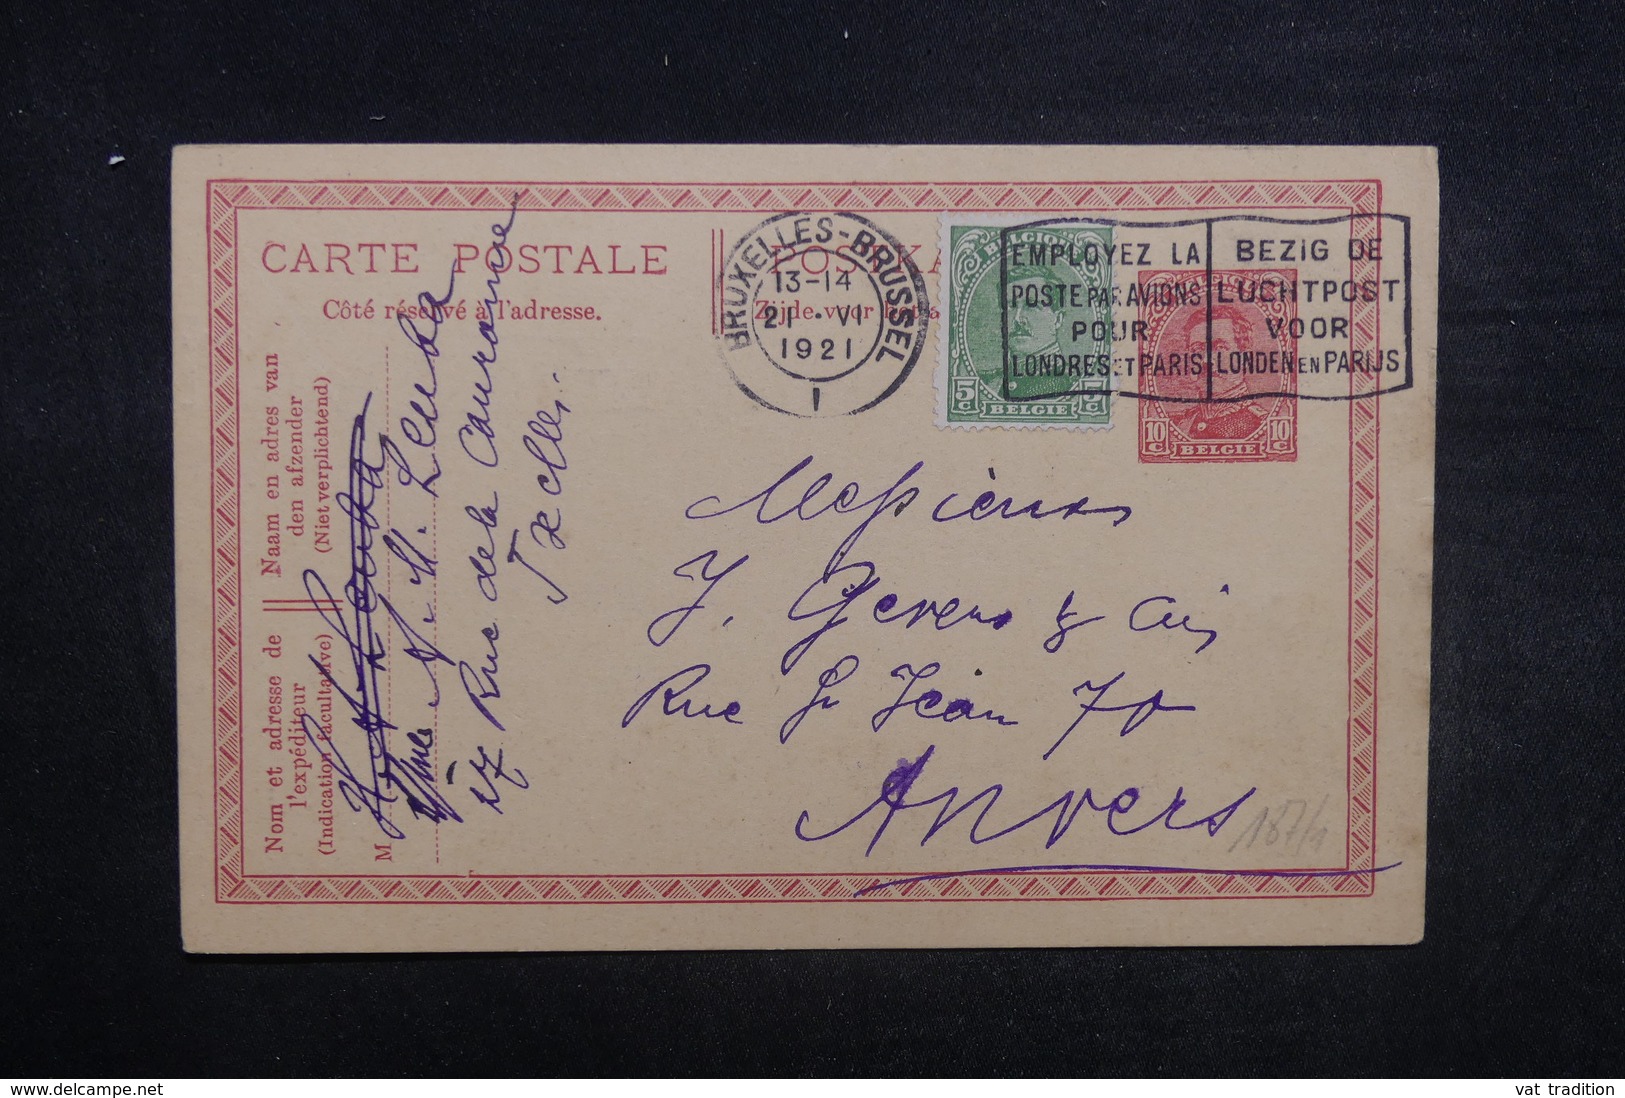 CARTE POSTALE
Côté réservé à l'adresse.
Zijde voor
BRUXELLES-BRUSSEL
13-14
21 · VI
1921
1
EMPLOYEZ LA
POSTE PAR AVIONS
POUR
LONDRES ET PARIS
BEZIG DE
LUCHTPOST
VOOR
LONDEN EN PARIJS
BELGIQUE
5c 5c
BELGIE
10c 10c
BELGIE
Naam en adres van
den afzender
(Niet verplichtend)
Nom et adresse de
l'expéditeur
(Indication facultative)
M
27 Rue de la Couronne
Ixelles.
Messieurs
J. Gevers & Cie
Rue St Jean 70
Anvers
187/1
www.delcampe.net
vat tradition